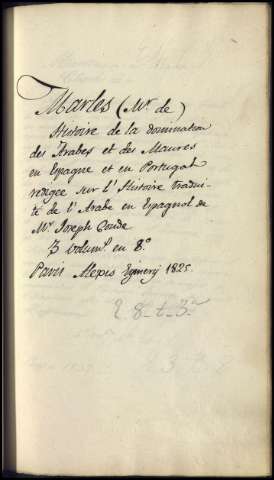 Marles (Mr. de)
Histoire de la domination
des Arabes et des Maures
en Espagne et en Portugal
redigée sur l'Histoire tradui-
te de l'Arabe en Espagnol de
Mr Joseph Conde
3 volums. en 8º
Paris Alexis Eymery 1825.
8-t-3a